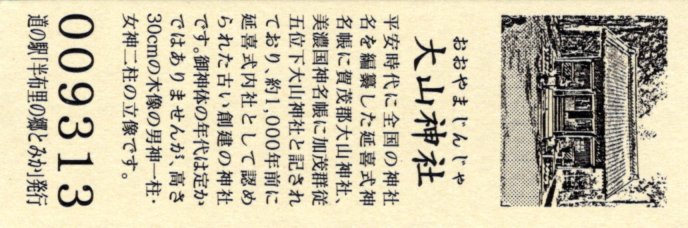 おおやまじんじゃ
大山神社
平安時代に全国の神社
名を編纂した延喜式神
名帳に賀茂郡大山神社、
美濃国神名帳に加茂群従
五位下大山神社と記され
ており、約1,000年前に
延喜式内社として認め
られた古い創建の神社
です。御神体の年代は定か
ではありませんが、高さ
30cmの木像の男神一柱・
女神二柱の立像です。
009313
道の駅「半布里の郷とみか」発行